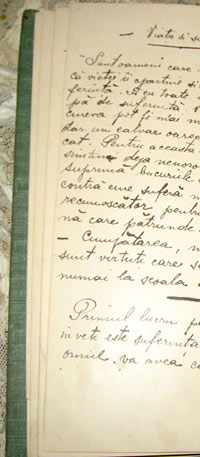 – Viața și su
Sunt oameni care
că vieții îi aparține și
ferință. – Cu toate
pă de suferință. V
cineva pot fi mai m
dar un calvar oarec
cat. Pentru aceasta
simtim deja nenoro
suprima bucuriile
contra cine suferă n
recunoscător pentru
nă care pătrunde
– Cumpătarea, m
sunt virtuti care s
numai la școala
Primul lucru p
învete este suferința
omul va avea c